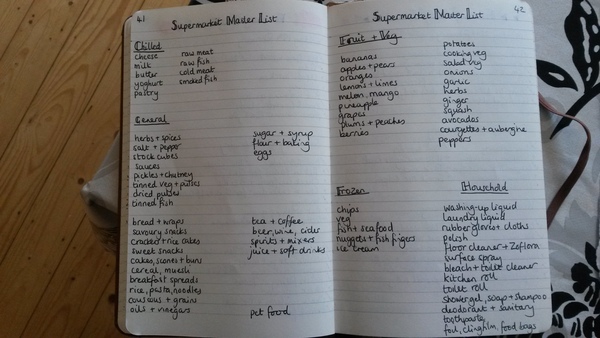 41
Supermarket Master List
Chilled
cheese
milk
butter
yoghurt
pastry
raw meat
raw fish
cold meat
smoked fish
General
herbs + spices
salt + pepper
stock cubes
sauces
pickles + chutney
tinned veg + pulses
dried pulses
tinned fish
sugar + syrup
flour + baking
eggs
bread + wraps
savoury snacks
cracker + rice cakes
sweet snacks
cakes, scones + buns
cereal, muesli
breakfast spreads
rice, pasta, noodles
cous cous + grains
oils + vinegars
tea + coffee
beer, wine, cider
spirits + mixers
juice + soft drinks
pet food
42
Supermarket Master List
Fruit + Veg
bananas
apples + pears
oranges
lemons + limes
melon, mango
pineapple
grapes
plums + peaches
berries
potatoes
cooking veg
salad veg
onions
garlic
herbs
ginger
squash
avocados
courgettes + aubergine
peppers
Frozen
chips
veg
fish + sea food
nuggets + fish fingers
ice cream
Household
washing-up liquid
laundry liquid
rubber gloves + cloths
polish
floor cleaner + Zoflora
surface spray
bleach + toilet cleaner
kitchen roll
toilet roll
shower gel, soap + shampoo
deodorant + sanitary
toothpaste
foil, clingfilm, food bags